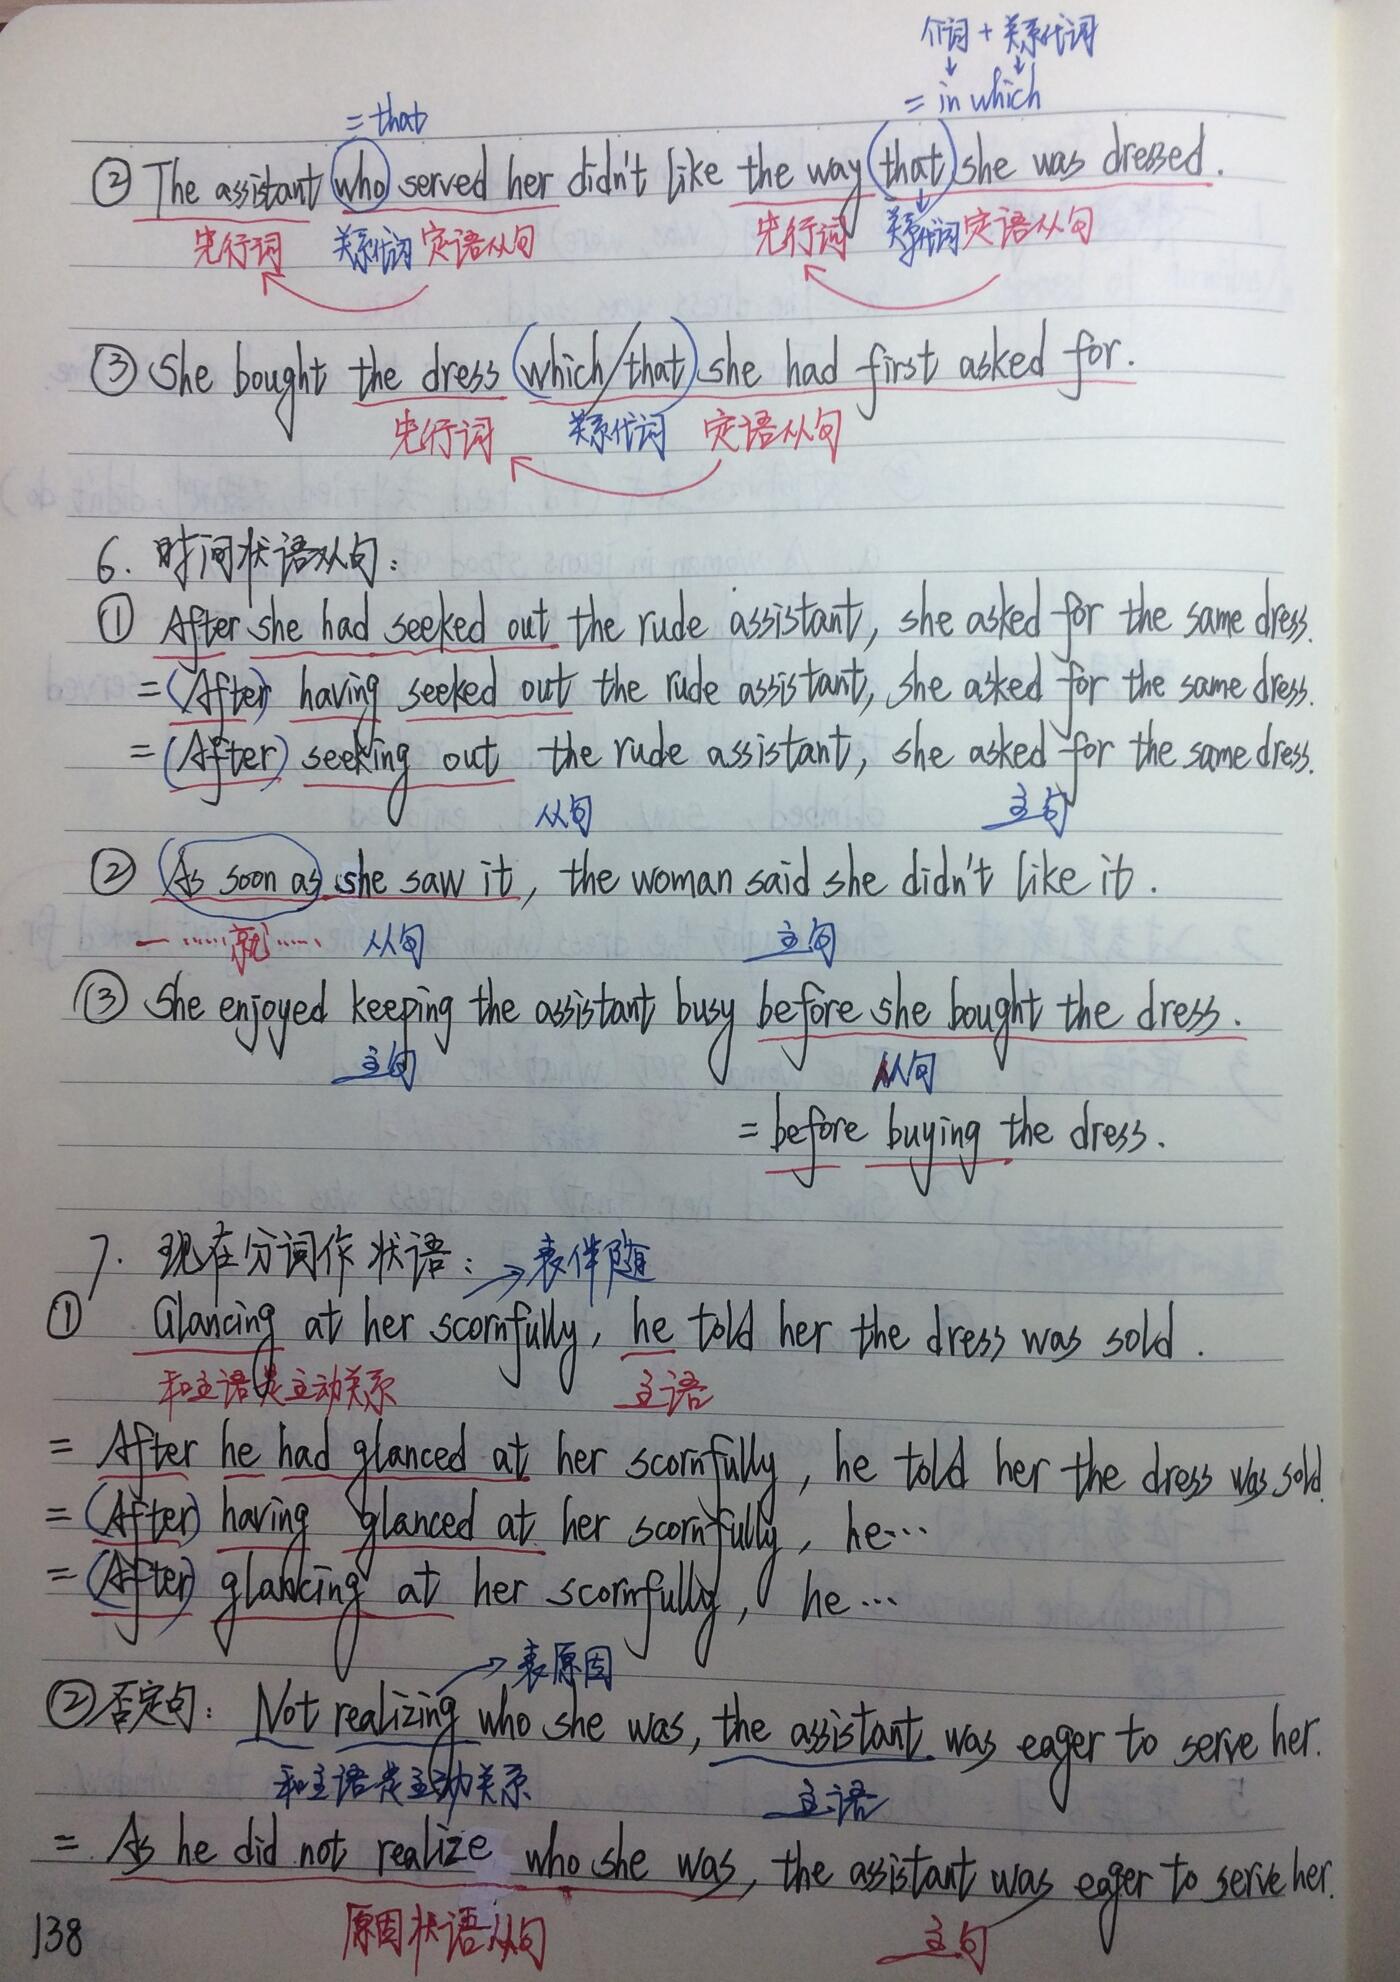 介词 + 关系代词
= that
= in which
② The assistant who served her didn't like the way that she was dressed.
先行词 关系代词 定语从句 先行词 关系代词 定语从句
③ She bought the dress (which/that) she had first asked for.
先行词 关系代词 定语从句
6. 时间状语从句:
① After she had seeked out the rude assistant, she asked for the same dress.
= (After) having seeked out the rude assistant, she asked for the same dress.
= (After) seeking out the rude assistant, she asked for the same dress.
从句 主句
② As soon as she saw it, the woman said she didn't like it.
一……就…… 从句 主句
③ She enjoyed keeping the assistant busy before she bought the dress.
主句 从句
= before buying the dress.
7. 现在分词作状语: → 表伴随
① Glancing at her scornfully, he told her the dress was sold.
和主语是主动关系 主语
= After he had glanced at her scornfully, he told her the dress was sold.
= (After) having glanced at her scornfully, he…
= (After) glancing at her scornfully, he…
→ 表原因
② 否定句: Not realizing who she was, the assistant was eager to serve her.
和主语是主动关系 主语
= As he did not realize who she was, the assistant was eager to serve her.
原因状语从句 主句
138